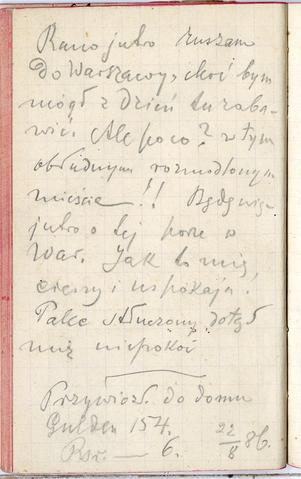 Rano jutro ruszam
do Warszawy, choć bym
mógł z dzień tu zaba-
wić. Ale po co? w tym
obłudnym rozmodlonym
mieście!! Będę więc
jutro o tej porze w
War. Jak to mię
cieszy i uspokaja.
Palec stłuczony dotąd
mię niepokoi
Przywiozł. do domu
Gulden 154.
Rsr. — 6. 22/8 86.